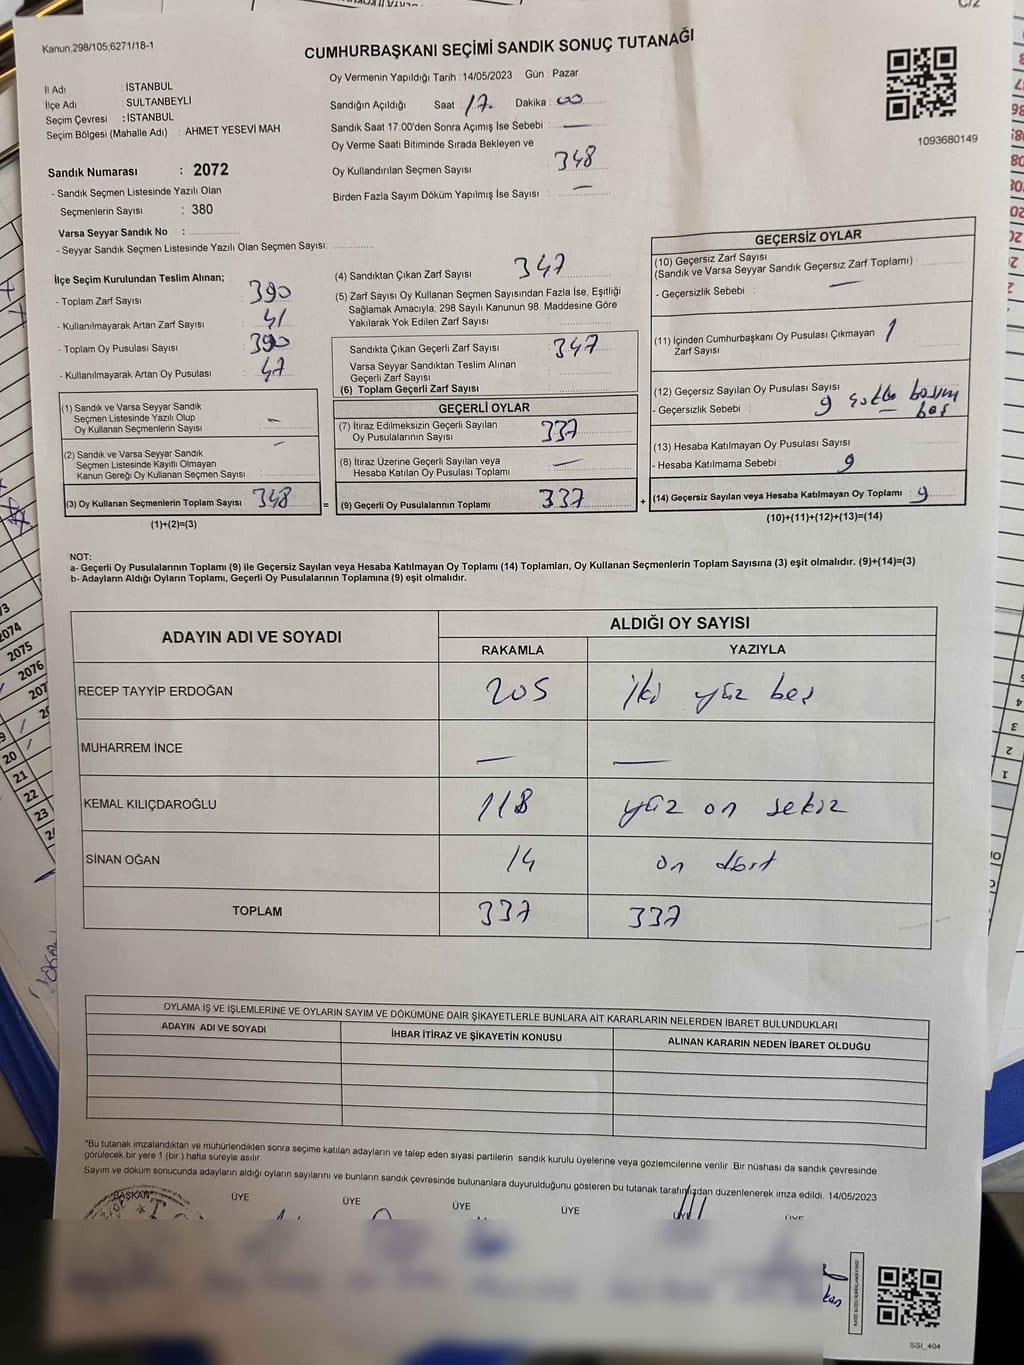 C/2
Kanun;298/105;6271/18-1
CUMHURBAŞKANI SEÇİMİ SANDIK SONUÇ TUTANAĞI
İl Adı : İSTANBUL
İlçe Adı : SULTANBEYLİ
Seçim Çevresi : İSTANBUL
Seçim Bölgesi (Mahalle Adı) : AHMET YESEVİ MAH.
Oy Vermenin Yapıldığı Tarih : 14/05/2023 Gün : Pazar
Sandığın Açıldığı Saat : 17. Dakika : 00
Sandık Saat 17.00'den Sonra Açımış İse Sebebi : —
Oy Verme Saati Bitiminde Sırada Bekleyen ve
Oy Kullandırılan Seçmen Sayısı : 348
Birden Fazla Sayım Döküm Yapılmış İse Sayısı : —
1093680149
Sandık Numarası : 2072
- Sandık Seçmen Listesinde Yazılı Olan
Seçmenlerin Sayısı : 380
Varsa Seyyar Sandık No : ..................
- Seyyar Sandık Seçmen Listesinde Yazılı Olan Seçmen Sayısı: ..............
İlçe Seçim Kurulundan Teslim Alınan;
- Toplam Zarf Sayısı : 390
- Kullanılmayarak Artan Zarf Sayısı : 41
- Toplam Oy Pusulası Sayısı : 390
- Kullanılmayarak Artan Oy Pusulası : 47
(1) Sandık ve Varsa Seyyar Sandık
Seçmen Listesinde Yazılı Olup
Oy Kullanan Seçmenlerin Sayısı : —
(2) Sandık ve Varsa Seyyar Sandık
Seçmen Listesinde Kayıtlı Olmayan
Kanun Gereği Oy Kullanan Seçmen Sayısı : —
(3) Oy Kullanan Seçmenlerin Toplam Sayısı 348
=
(1)+(2)=(3)
(4) Sandıktan Çıkan Zarf Sayısı 347
(5) Zarf Sayısı Oy Kullanan Seçmen Sayısından Fazla İse, Eşitliği
Sağlamak Amacıyla; 298 Sayılı Kanunun 98. Maddesine Göre
Yakılarak Yok Edilen Zarf Sayısı :
Sandıkta Çıkan Geçerli Zarf Sayısı : 347
Varsa Seyyar Sandıktan Teslim Alınan
Geçerli Zarf Sayısı
(6) Toplam Geçerli Zarf Sayısı
GEÇERLİ OYLAR
(7) İtiraz Edilmeksizin Geçerli Sayılan
Oy Pusulalarının Sayısı : 337
(8) İtiraz Üzerine Geçerli Sayılan veya
Hesaba Katılan Oy Pusulası Toplamı : —
(9) Geçerli Oy Pusulalarının Toplamı 337
+
GEÇERSİZ OYLAR
(10) Geçersiz Zarf Sayısı
(Sandık ve Varsa Seyyar Sandık Geçersiz Zarf Toplamı)
- Geçersizlik Sebebi : —
(11) İçinden Cumhurbaşkanı Oy Pusulası Çıkmayan
Zarf Sayısı : 1
(12) Geçersiz Sayılan Oy Pusulası Sayısı
- Geçersizlik Sebebi : 9 boş
(13) Hesaba Katılmayan Oy Pusulası Sayısı
- Hesaba Katılmama Sebebi : 9
(14) Geçersiz Sayılan veya Hesaba Katılmayan Oy Toplamı : 9
(10)+(11)+(12)+(13)=(14)
NOT:
a- Geçerli Oy Pusulalarının Toplamı (9) ile Geçersiz Sayılan veya Hesaba Katılmayan Oy Toplamı (14) Toplamları, Oy Kullanan Seçmenlerin Toplam Sayısına (3) eşit olmalıdır. (9)+(14)=(3)
b- Adayların Aldığı Oyların Toplamı, Geçerli Oy Pusulalarının Toplamına (9) eşit olmalıdır.
ADAYIN ADI VE SOYADI
ALDIĞI OY SAYISI
RAKAMLA YAZIYLA
RECEP TAYYİP ERDOĞAN 205 iki yüz beş
MUHARREM İNCE — —
KEMAL KILIÇDAROĞLU 118 yüz on sekiz
SİNAN OĞAN 14 on dört
TOPLAM 337 337
OYLAMA İŞ VE İŞLEMLERİNE VE OYLARIN SAYIM VE DÖKÜMÜNE DAİR ŞİKAYETLERLE BUNLARA AİT KARARLARIN NELERDEN İBARET BULUNDUKLARI
ADAYIN ADI VE SOYADI İHBAR İTİRAZ VE ŞİKAYETİN KONUSU ALINAN KARARIN NEDEN İBARET OLDUĞU
*Bu tutanak imzalandıktan ve mühürlendikten sonra seçime katılan adayların ve talep eden siyasi partilerin sandık kurulu üyelerine veya gözlemcilerine verilir. Bir nüshası da sandık çevresinde
görülecek bir yere 1 (bir ) hafta süreyle asılır.
Sayım ve döküm sonucunda adayların aldığı oyların sayılarını ve bunların sandık çevresinde bulunanlara duyurulduğunu gösteren bu tutanak tarafımızdan düzenlenerek imza edildi. 14/05/2023
BAŞKAN ÜYE ÜYE ÜYE ÜYE ÜYE ÜYE
SSI_404
2074
2075
2076
20
21
22
23